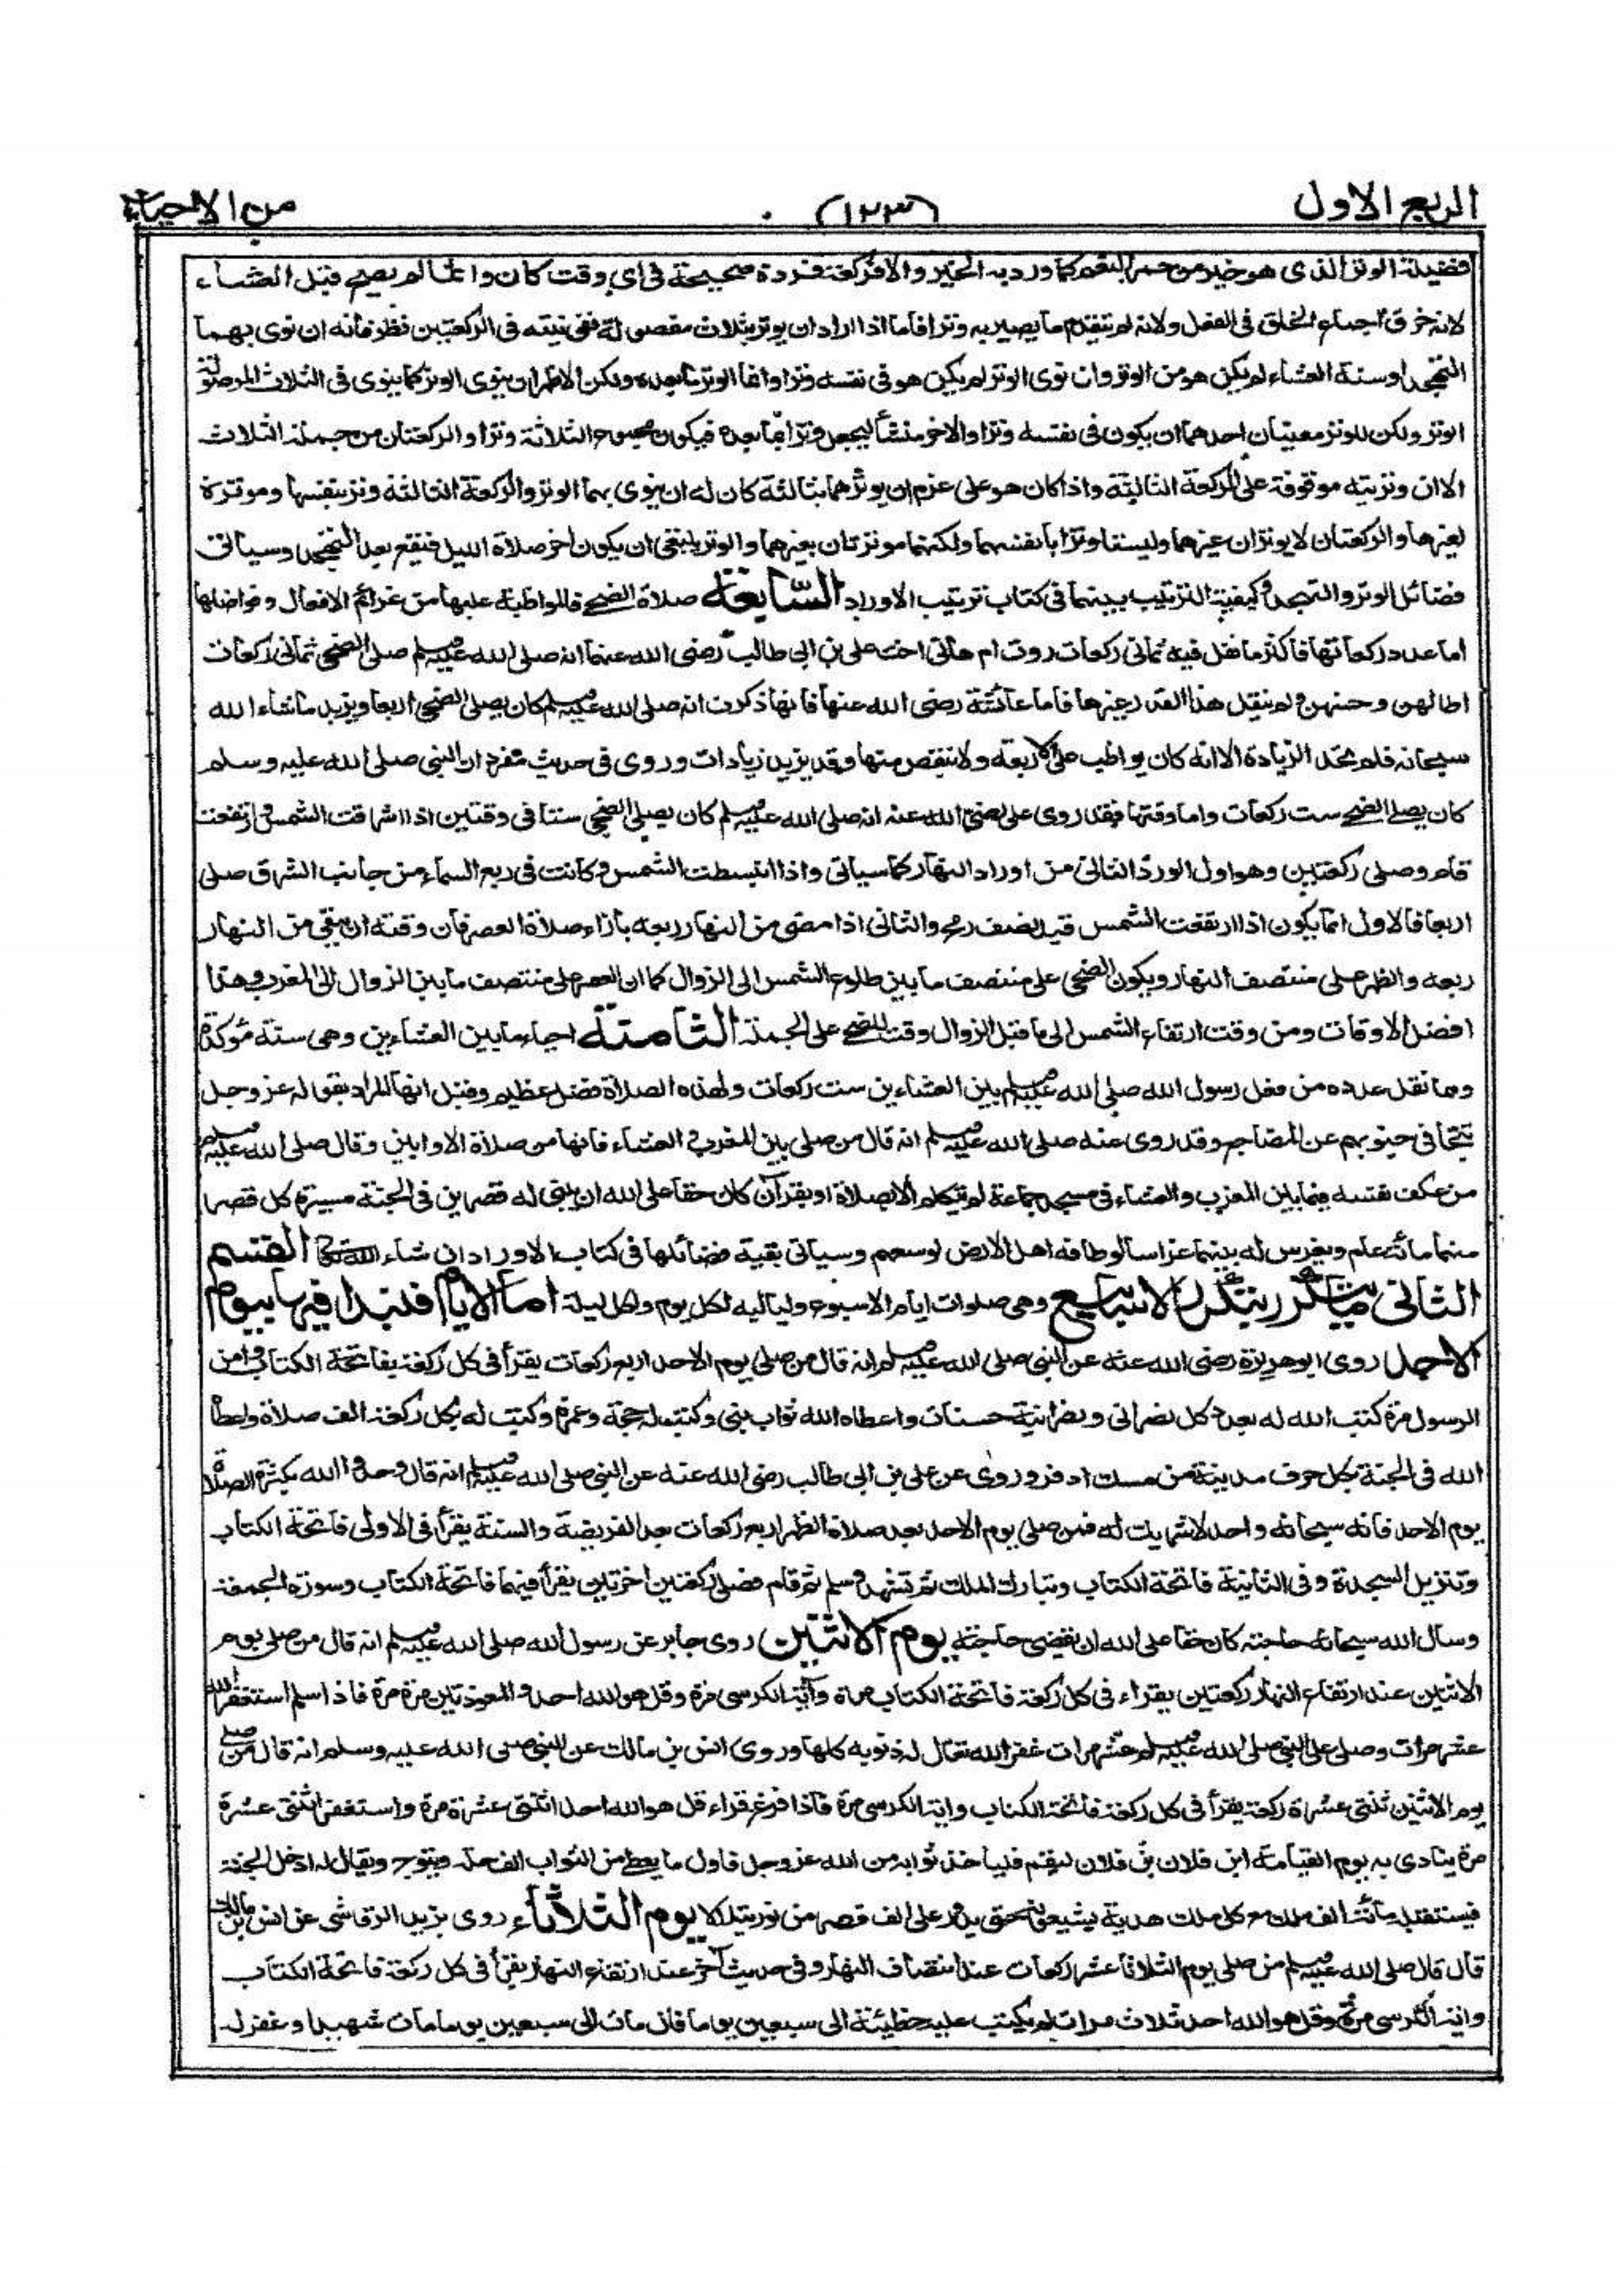 الربع الاول
(١٢٣)
من الاحياء
فضيلة الوتر الذى هو خير من حمر النعم كما ورد به الخبر والا فركعة فردة صحيحة فى اى وقت كان وانما لم يصح قبل العشاء
لانه خرق اجماع الخلق فى الفعل ولانه لم يتقدم ما يصير به وترا فاما اذا اراد ان يوتر بثلاث مفصولة ففى نيته فى الركعتين نظر فانه ان نوى بهما
التهجد او سنة العشاء لم يكن هو من الوتر وان نوى الوتر لم يكن هو فى نفسه وترا وانما الوتر ما بعده ولكن الاظهر ان ينوى الوتر كما ينوى فى الثلاث الموصولة
الوتر ولكن للوتر معنيان احدهما ان يكون فى نفسه وترا والاخر منشأ ليجعل وترا بما بعده فيكون مجموع الثلاثة وترا والركعتان من جملة الثلاث
الا ان وتريته موقوفة على الركعة الثالثة واذا كان هو على عزم ان يوترهما بثالثة كان له ان ينوى بهما الوتر والركعة الثالثة وتر بنفسها وموترة
لغيرها والركعتان لا يوتران غيرهما وليستا وترا بانفسهما ولكنهما موترتان بغيرهما والوتر ينبغى ان يكون اخر صلاة الليل فيقع بعد التهجد وسيأتى
فضائل الوتر والتهجد وكيفية الترتيب بينهما فى كتاب ترتيب الاوراد السابعة صلاة الضحى فالمواظبة عليها من عزائم الافعال وفواضلها
اما عدد ركعاتها فاكثر ما نقل فيه ثمانى ركعات روت ام هانى اخت على بن ابى طالب رضى الله عنهما انه صلى الله عليه وسلم صلى الضحى ثمانى ركعات
اطالهن وحسنهن ولم ينقل هذا القدر غيرها فاما عائشة رضى الله عنها فانها ذكرت انه صلى الله عليه وسلم كان يصلى الضحى اربعا ويزيد ما شاء الله
سبحانه فلم تحد الزيادة الا انه كان يواظب على الاربعة ولا ينقص منها وقد يزيد زيادات وروى فى حديث مفرد ان النبى صلى الله عليه وسلم
كان يصلى الضحى ست ركعات واما وقتها فقد روى على رضى الله عنه انه صلى الله عليه وسلم كان يصلى الضحى ستا فى وقتين اذا اشرقت الشمس وارتفعت
قام وصلى ركعتين وهو اول الورد الثانى من اوراد النهار كما سياتى واذا انبسطت الشمس وكانت فى ربع السماء من جانب الشرق صلى
اربعا فالاول انما يكون اذا ارتفعت الشمس قيد نصف رمح والثانى اذا مضى من النهار ربعه بازاء صلاة العصر فان وقته ان يبقى من النهار
ربعه والظهر على منتصف النهار ويكون الضحى على منتصف ما بين طلوع الشمس الى الزوال كما ان العصر على منتصف ما بين الزوال الى المغرب وهذا
افضل الاوقات ومن وقت ارتفاع الشمس الى ما قبل الزوال وقت للضحى على الجملة الثامنة احياء ما بين العشاءين وهى سنة مؤكدة
ومما نقل عدده من فعل رسول الله صلى الله عليه وسلم بين العشاءين ست ركعات ولهذه الصلاة فضل عظيم وقيل انها المراد بقوله عز وجل
تتجافى جنوبهم عن المضاجع وقد روى عنه صلى الله عليه وسلم انه قال من صلى بين المغرب والعشاء فانها من صلاة الاوابين وقال صلى الله عليه وسلم
من عكف نفسه فيما بين المغرب والعشاء فى مسجد جماعة لم يتكلم الا بصلاة او بقرآن كان حقا على الله ان يبنى له قصرين فى الجنة مسيرة كل قصر
منهما مائة عام ويغرس له بينهما غراسا لو طافه اهل الارض لوسعهم وسياتى بقية فضائلها فى كتاب الاوراد ان شاء الله تعالى القسم
الثانى ما يتكرر بتكرر الاسابيع وهى صلوات ايام الاسبوع ولياليه لكل يوم ولكل ليلة اما الايام فنبدا فيها بيوم
الاحد روى ابو هريرة رضى الله عنه عن النبى صلى الله عليه وسلم انه قال من صلى يوم الاحد اربع ركعات يقرأ فى كل ركعة بفاتحة الكتاب وامن
الرسول مرة كتب الله له بعدد كل نصرانى ونصرانية حسنات واعطاه الله ثواب نبى وكتب له حجة وعمرة وكتب له بكل ركعة الف صلاة واعطاه
الله فى الجنة بكل حرف مدينة من مسك اذفر وروى عن على بن ابى طالب رضى الله عنه عن النبى صلى الله عليه وسلم انه قال وحدوا الله بكثرة الصلاة
يوم الاحد فانه سبحانه واحد لا شريك له فمن صلى يوم الاحد بعد صلاة الظهر اربع ركعات بعد الفريضة والسنة يقرأ فى الاولى فاتحة الكتاب
وتنزيل السجدة وفى الثانية فاتحة الكتاب وتبارك الملك ثم تشهد وسلم ثم قام فصلى ركعتين اخرتين يقرأ فيهما فاتحة الكتاب وسورة الجمعة
وسال الله سبحانه حاجته كان حقا على الله ان يقضى حاجته يوم الاثنين روى جابر عن رسول الله صلى الله عليه وسلم انه قال من صلى يوم
الاثنين عند ارتفاع النهار ركعتين يقراء فى كل ركعة فاتحة الكتاب مرة وآية الكرسى مرة وقل هو الله احد والمعوذتين مرة مرة فاذا سلم استغفر الله
عشر مرات وصلى على النبى صلى الله عليه وسلم عشر مرات غفر الله تعالى له ذنوبه كلها وروى انس بن مالك عن النبى صلى الله عليه وسلم انه قال من صلى
يوم الاثنين ثنتى عشرة ركعة يقرأ فى كل ركعة فاتحة الكتاب واية الكرسى مرة فاذا فرغ قراء قل هو الله احد اثنتى عشرة مرة واستغفر اثنتى عشرة
مرة ينادى به يوم القيامة اين فلان بن فلان ليقم فليأخذ ثوابه من الله عز وجل فاول ما يعطى من الثواب الف حلة ويتوج ويقال له ادخل الجنة
فيستقبله مائة الف ملك مع كل ملك هدية يشيعونه حتى يدور على الف قصر من نور يتلألأ يوم الثلاثاء روى يزيد الرقاشى عن انس بن مالك
قال قال صلى الله عليه وسلم من صلى يوم الثلاثا عشر ركعات عند انتصاف النهار وفى حديث آخر عند ارتفاع النهار يقرأ فى كل ركعة فاتحة الكتاب
واية الكرسى مرة وقل هو الله احد ثلاث مرات لم يكتب عليه خطيئة الى سبعين يوما فان مات الى سبعين يوما مات شهيدا وغفر له